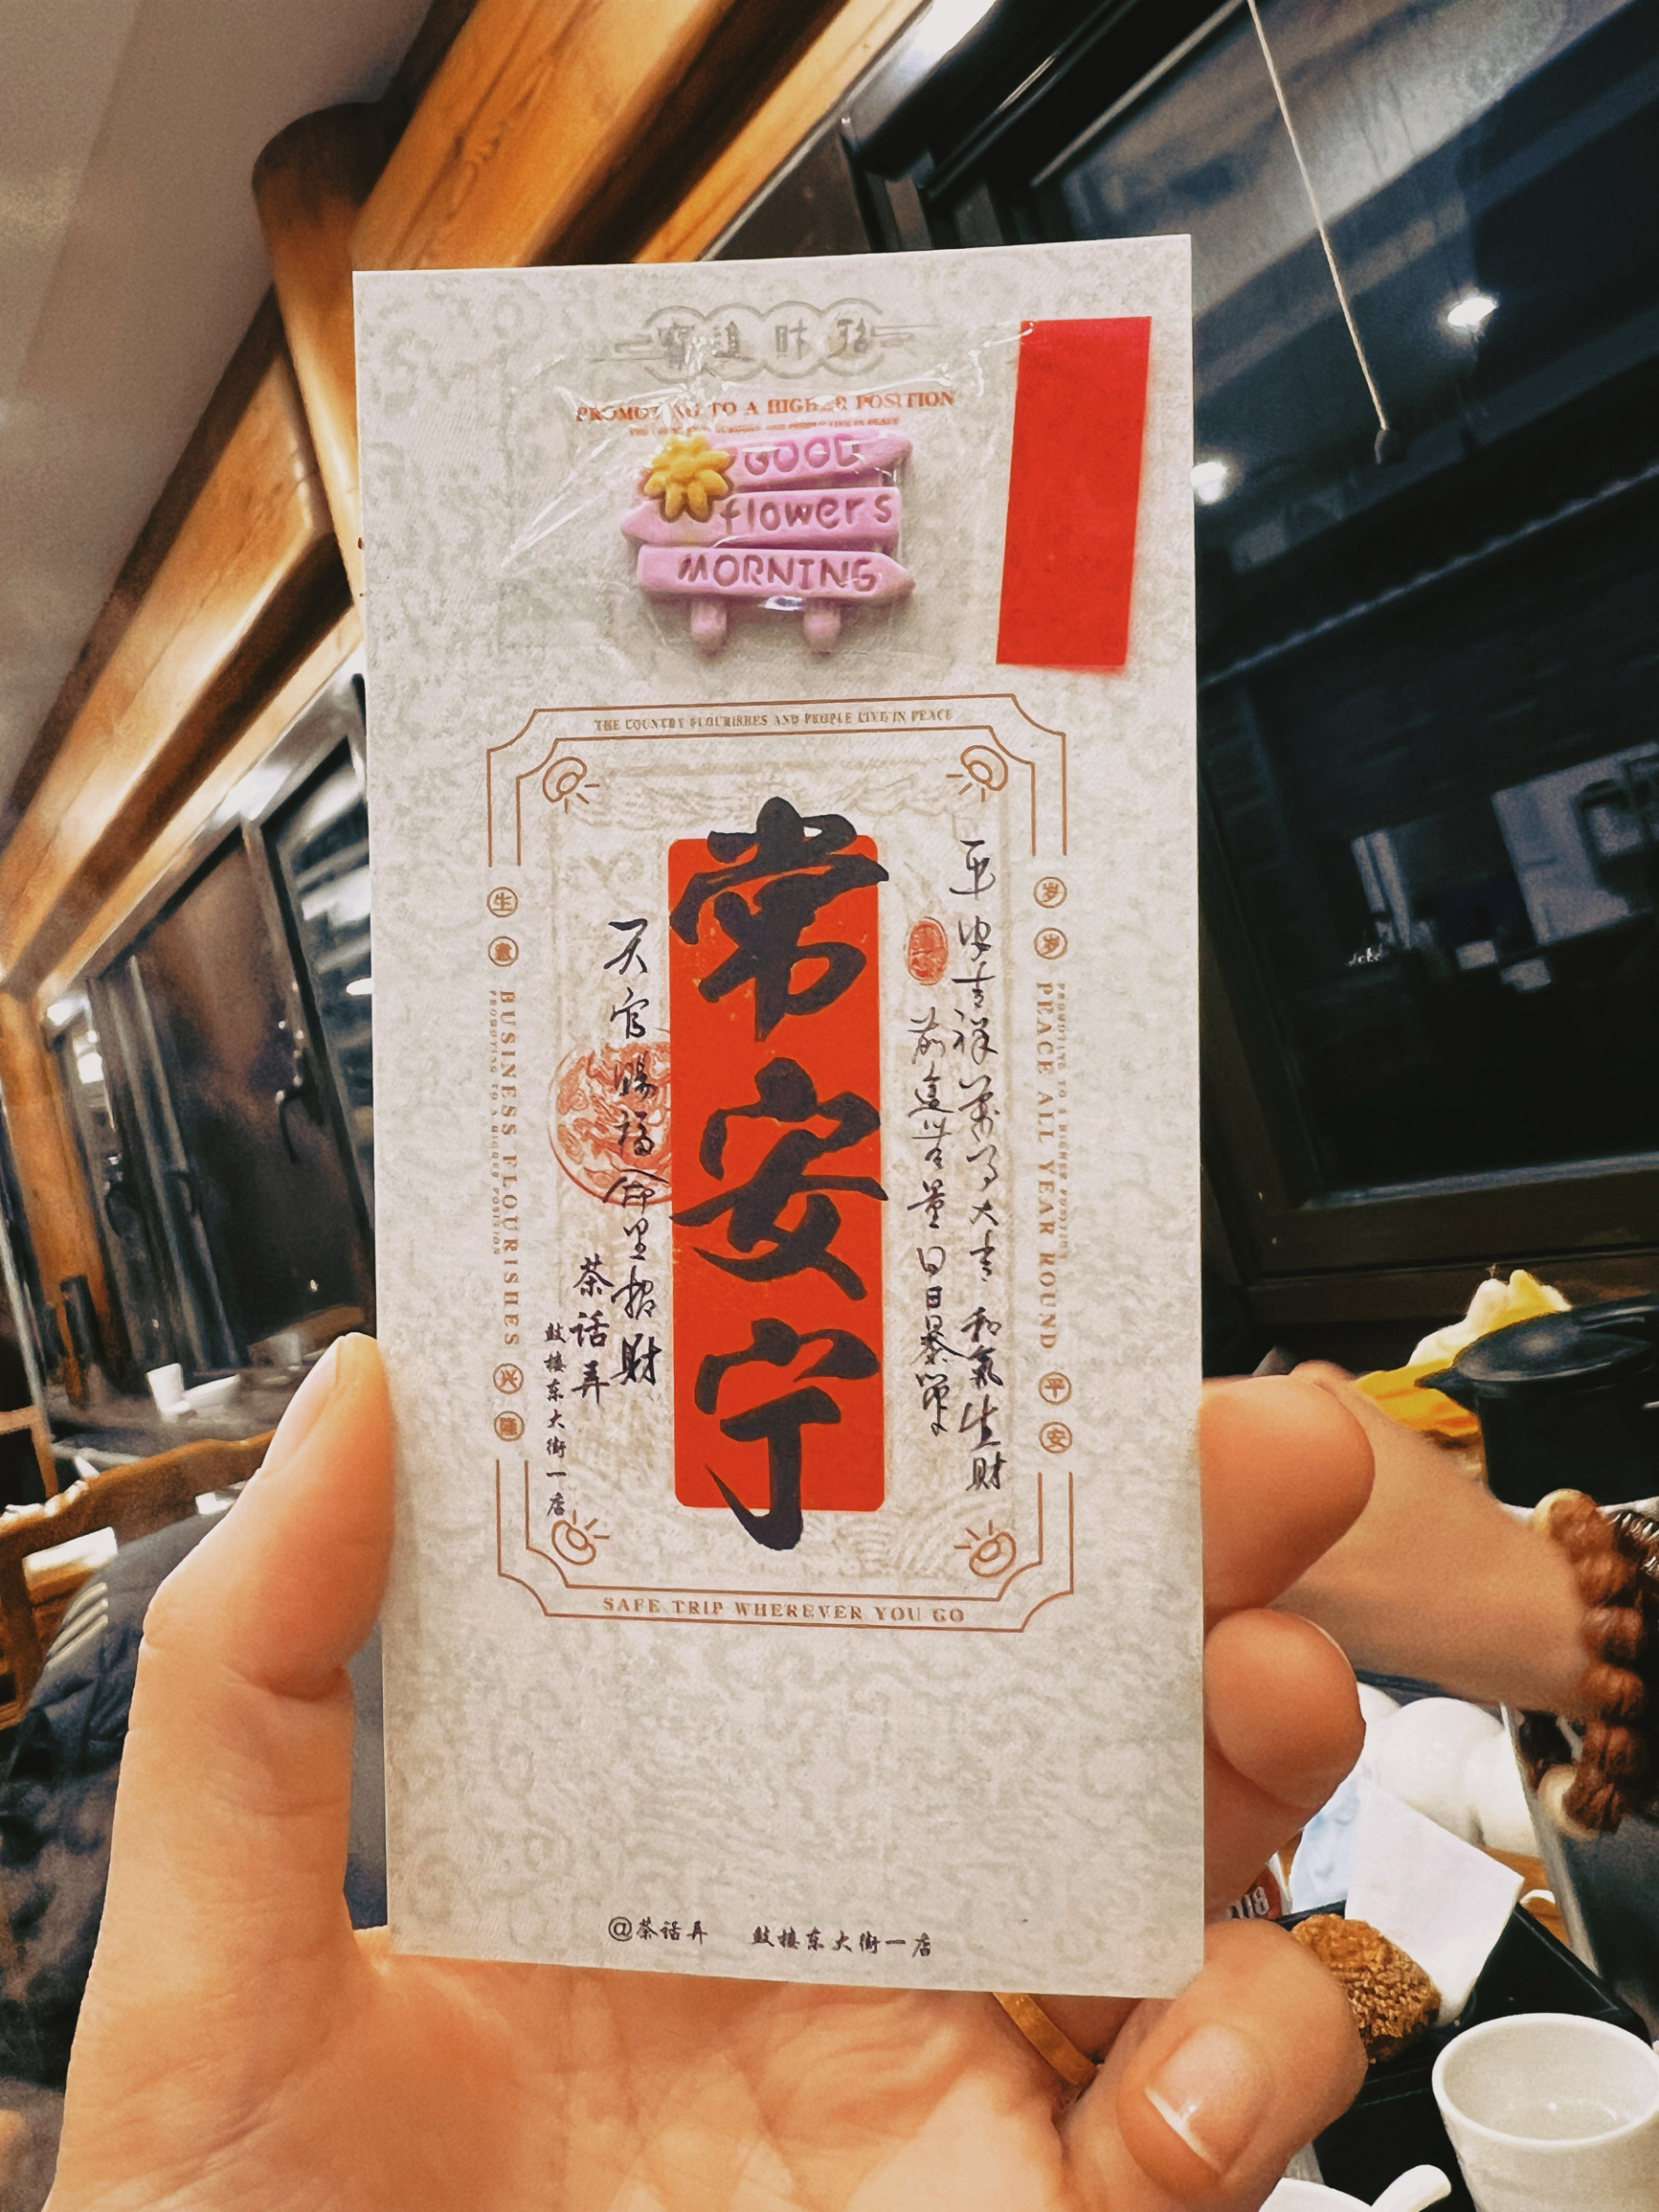 PROMOTING TO A HIGHER POSITION
GOOD
flowers
MORNING
THE COUNTRY FLOURISHES AND PEOPLE LIVE IN PEACE
岁岁
PEACE ALL YEAR ROUND
PROMOTING TO A HIGHER POSITION
平安
平安吉祥 万事大吉 和氣生财
前途无量 日日暴富
常安宁
天官赐福 命里招财
茶话弄
鼓楼东大街一店
生意
BUSINESS FLOURISHES
PROMOTING TO A HIGHER POSITION
兴隆
SAFE TRIP WHEREVER YOU GO
@茶话弄 鼓楼东大街一店